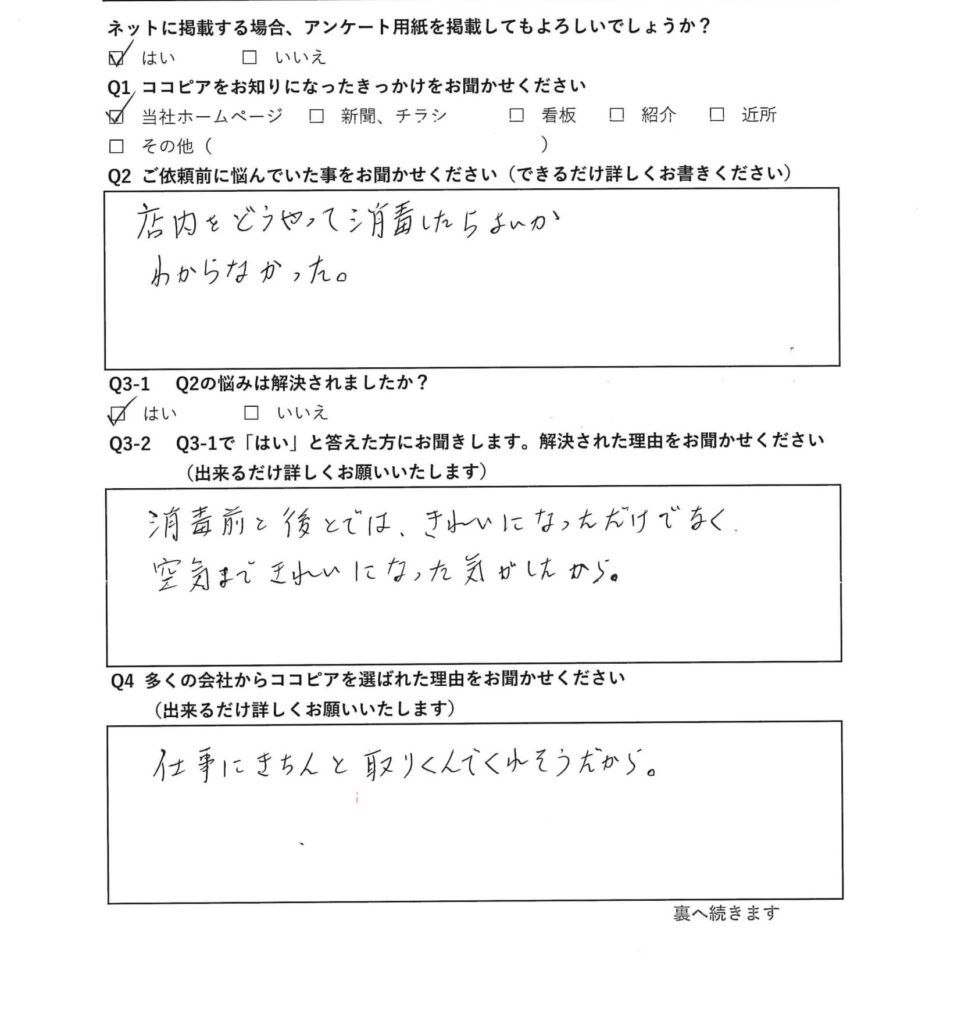 ネットに掲載する場合、アンケート用紙を掲載してもよろしいでしょうか？
☑ はい □ いいえ
Q1 ココピアをお知りになったきっかけをお聞かせください
☑ 当社ホームページ □ 新聞、チラシ □ 看板 □ 紹介 □ 近所
□ その他（ ）
Q2 ご依頼前に悩んでいた事をお聞かせください（できるだけ詳しくお書きください）
店内をどうやって消毒したらよいか
わからなかった。
Q3-1 Q2の悩みは解決されましたか？
☑ はい □ いいえ
Q3-2 Q3-1で「はい」と答えた方にお聞きします。解決された理由をお聞かせください
（出来るだけ詳しくお願いいたします）
消毒前と後とでは、きれいになっただけでなく、
空気まできれいになった気がしたから。
Q4 多くの会社からココピアを選ばれた理由をお聞かせください
（出来るだけ詳しくお願いいたします）
仕事にきちんと取りくんでくれそうだから。
裏へ続きます